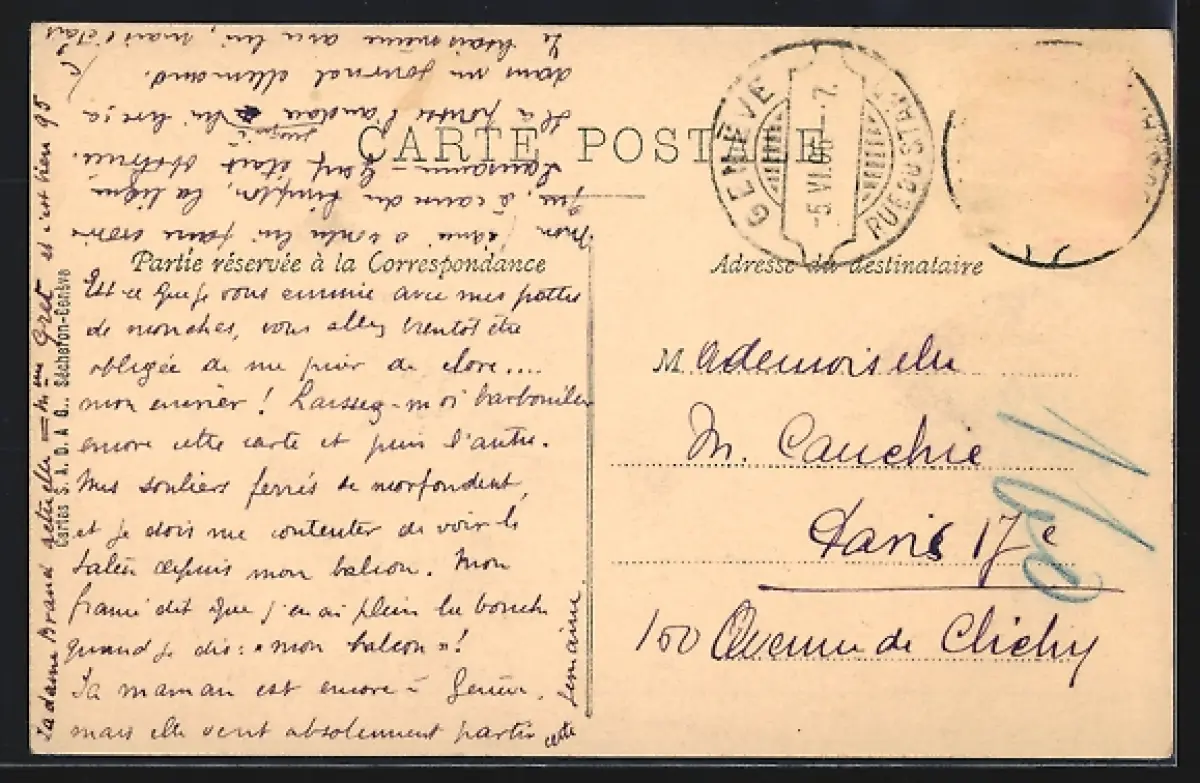 CARTE POSTALE
Partie réservée à la Correspondance
Adresse du destinataire
GENÈVE
-5.VI. -7.
RUE DU STAND
Est-ce que je vous ennuie avec mes pattes
de mouches, vous allez bientôt être
obligée de me prier de clore....
mon encrier ! Laissez-moi barbouiller
encore cette carte et puis l'autre.
Mes souliers ferrés se morfondent,
et je dois me contenter de voir le
Salève depuis mon balcon. Mon
fiancé dit que j'en ai plein la bouche
quand je dis : « mon balcon » !
Sa maman est encore à Genève,
mais elle veut absolument partir cette
semaine
mon fiancé a voulu lui faire croire
que, à cause du Simplon, la ligne
Lausanne - Genf était obstruée.
Il a poussé l'audace jusqu'à lui lire ça
dans un journal allemand.
Je lisais même avec lui, mais c'était
la dame Brand actuelle
et c'est bien 95
Cartes S. A. D. A. G., Sécheron-Genève
Mademoiselle
M. Cauchie
Paris 17e
100 Avenue de Clichy